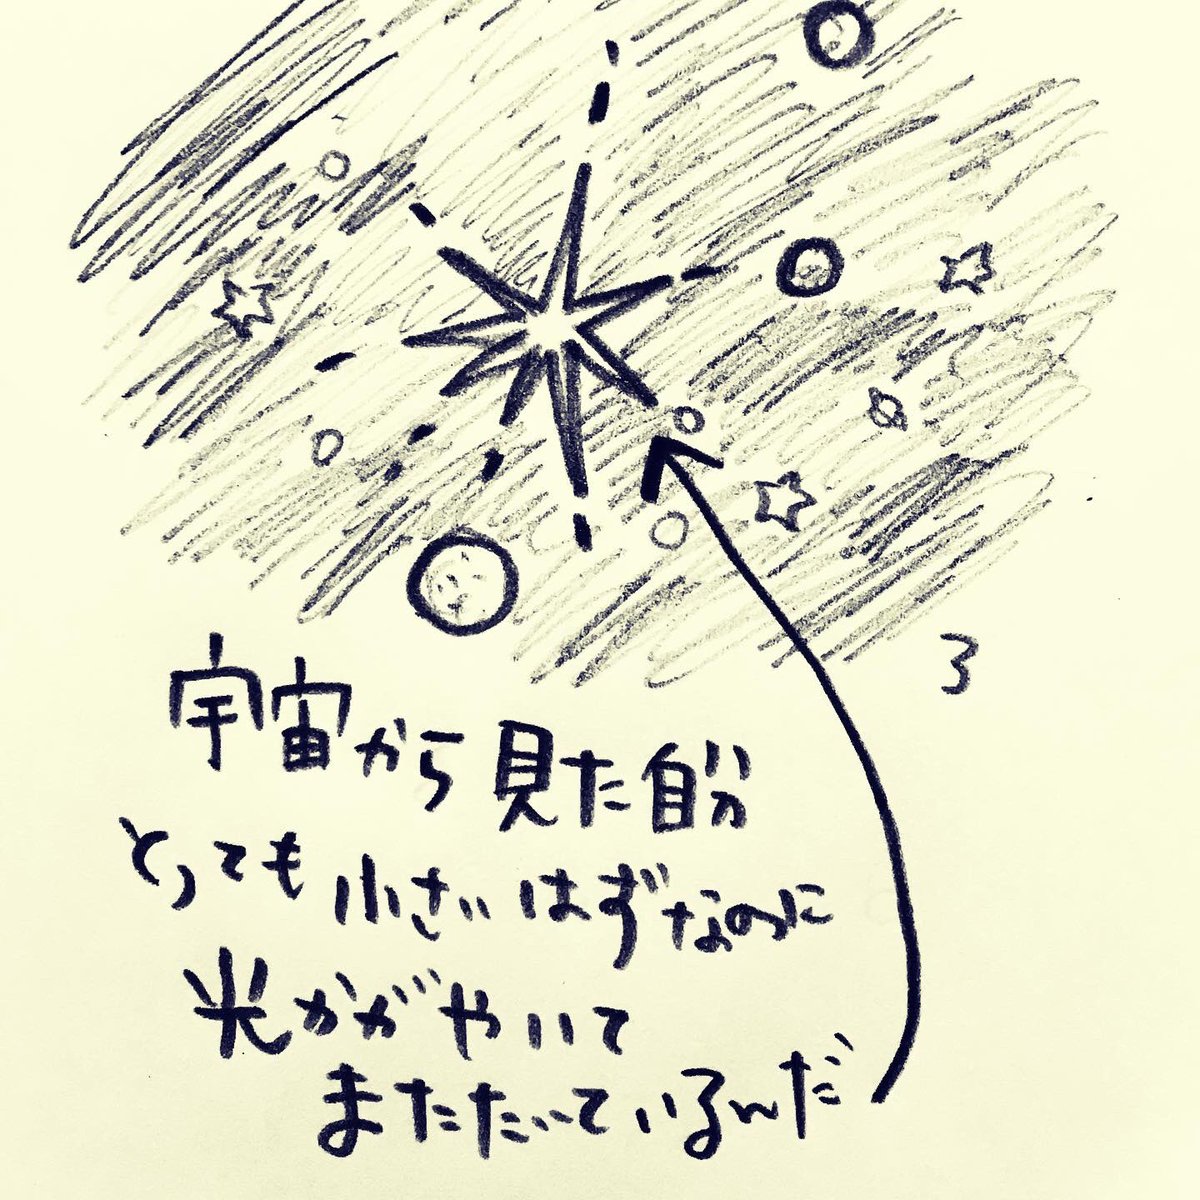 3
宇宙から見た自分
とっても小さいはずなのに
光かがやいて
またたいているんだ